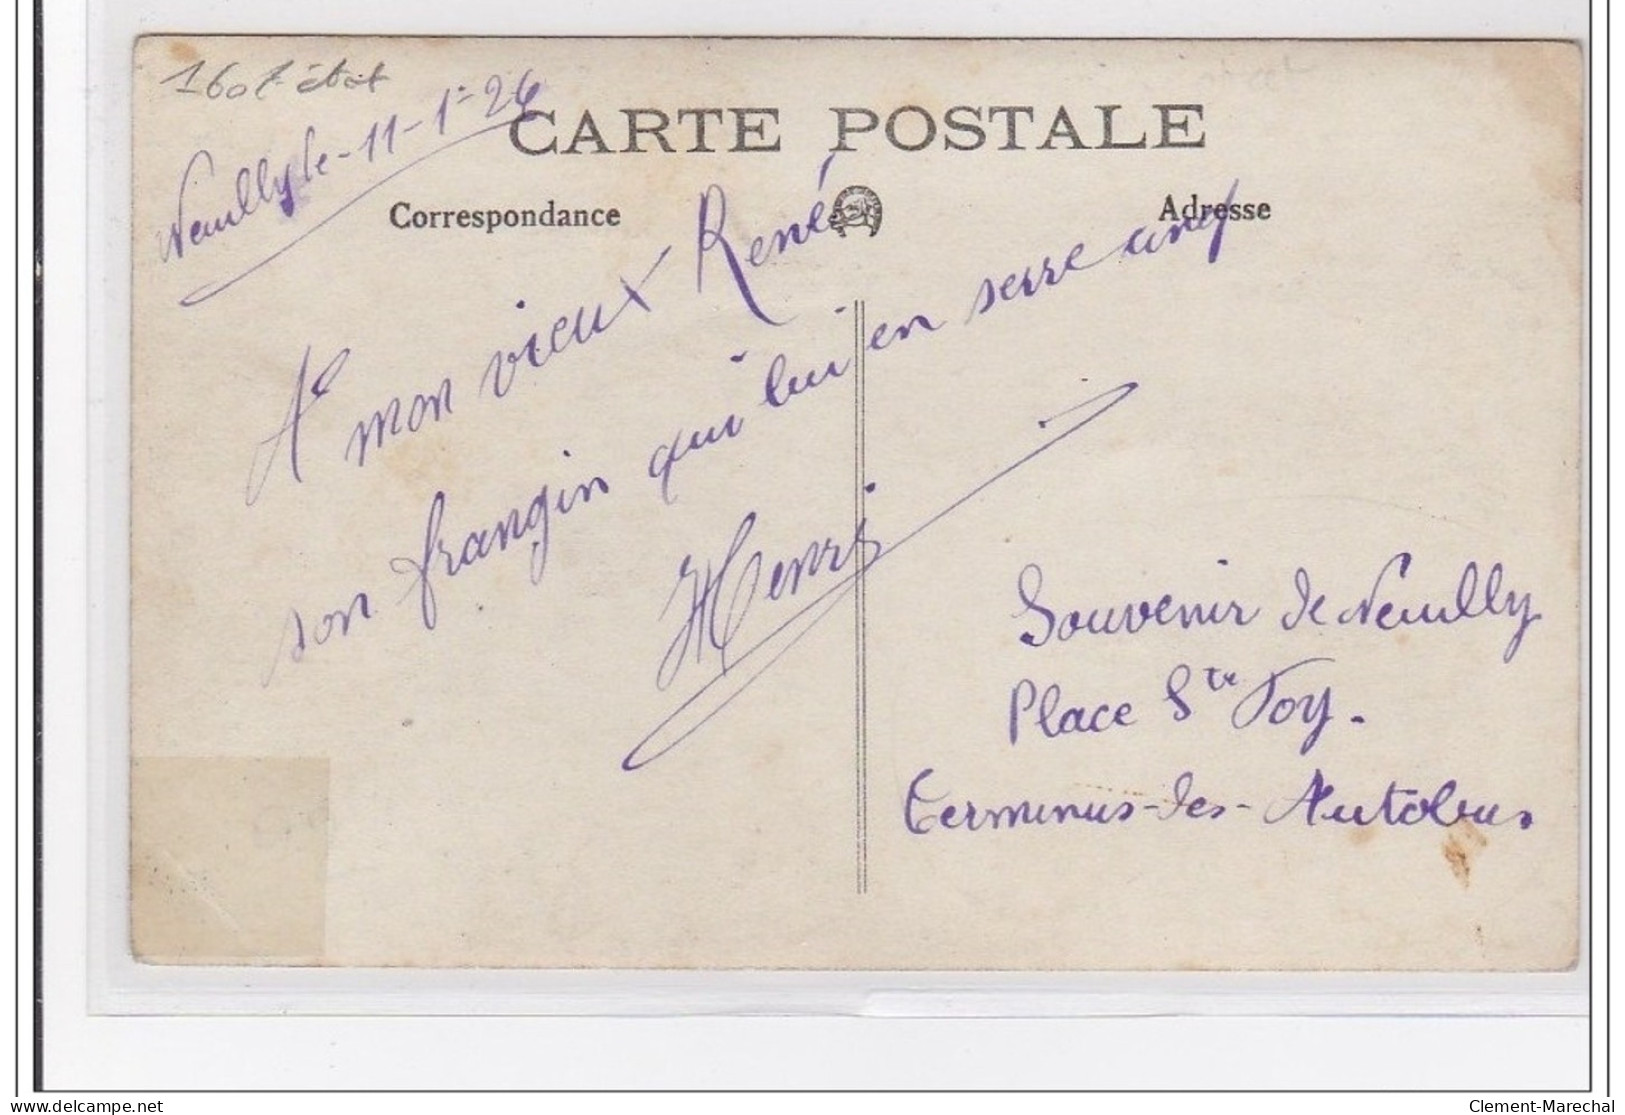 160 f état
Neuilly le - 11 - 1 - 26
CARTE POSTALE
Correspondance
Adresse
A mon vieux René
son frangin qui lui en serre cinq
Henri
Souvenir de Neuilly
Place Ste Foy.
terminus-des-Autobus
Clement-Marechal